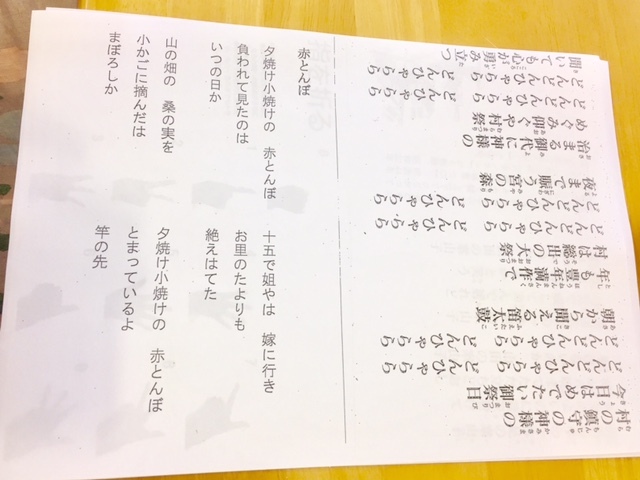 赤とんぼ
夕焼け小焼けの 赤とんぼ
負われて見たのは
いつの日か
山の畑の 桑の実を
小かごに摘んだは
まぼろしか
十五で姐やは 嫁に行き
お里のたよりも
絶えはてた
夕焼け小焼けの 赤とんぼ
とまっているよ
竿の先
村の鎮守の神様の
今日はめでたい御祭日
どんどんひゃらら どんひゃらら
どんどんひゃらら どんひゃらら
朝から聞える笛太鼓
年も豊年満作で
村は総出の大祭
どんどんひゃらら どんひゃらら
どんどんひゃらら どんひゃらら
夜まで賑う宮の森
治まる御代に神様の
めぐみ仰ぐや村祭
どんどんひゃらら どんひゃらら
どんどんひゃらら どんひゃらら
聞いても心が勇み立つ